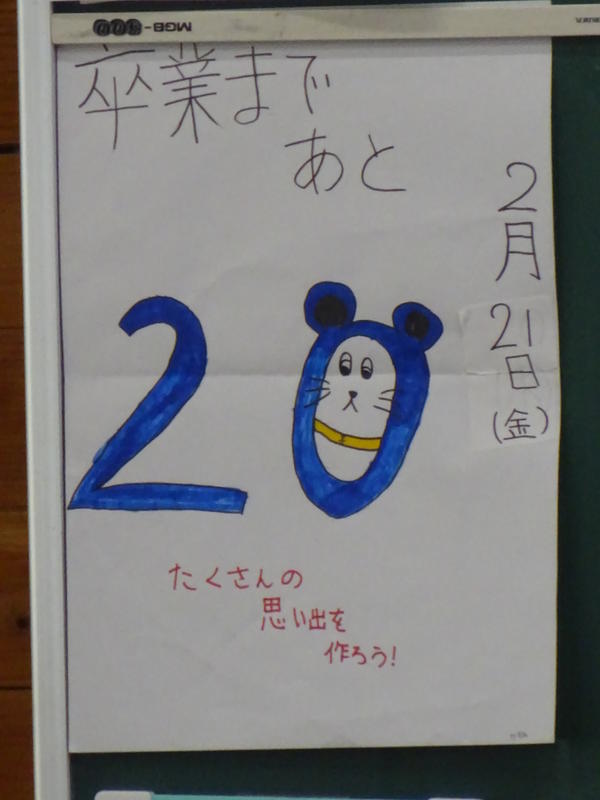 卒業まで
あと
20
2月21日(金)
たくさんの
思い出を
作ろう!
MGB-500